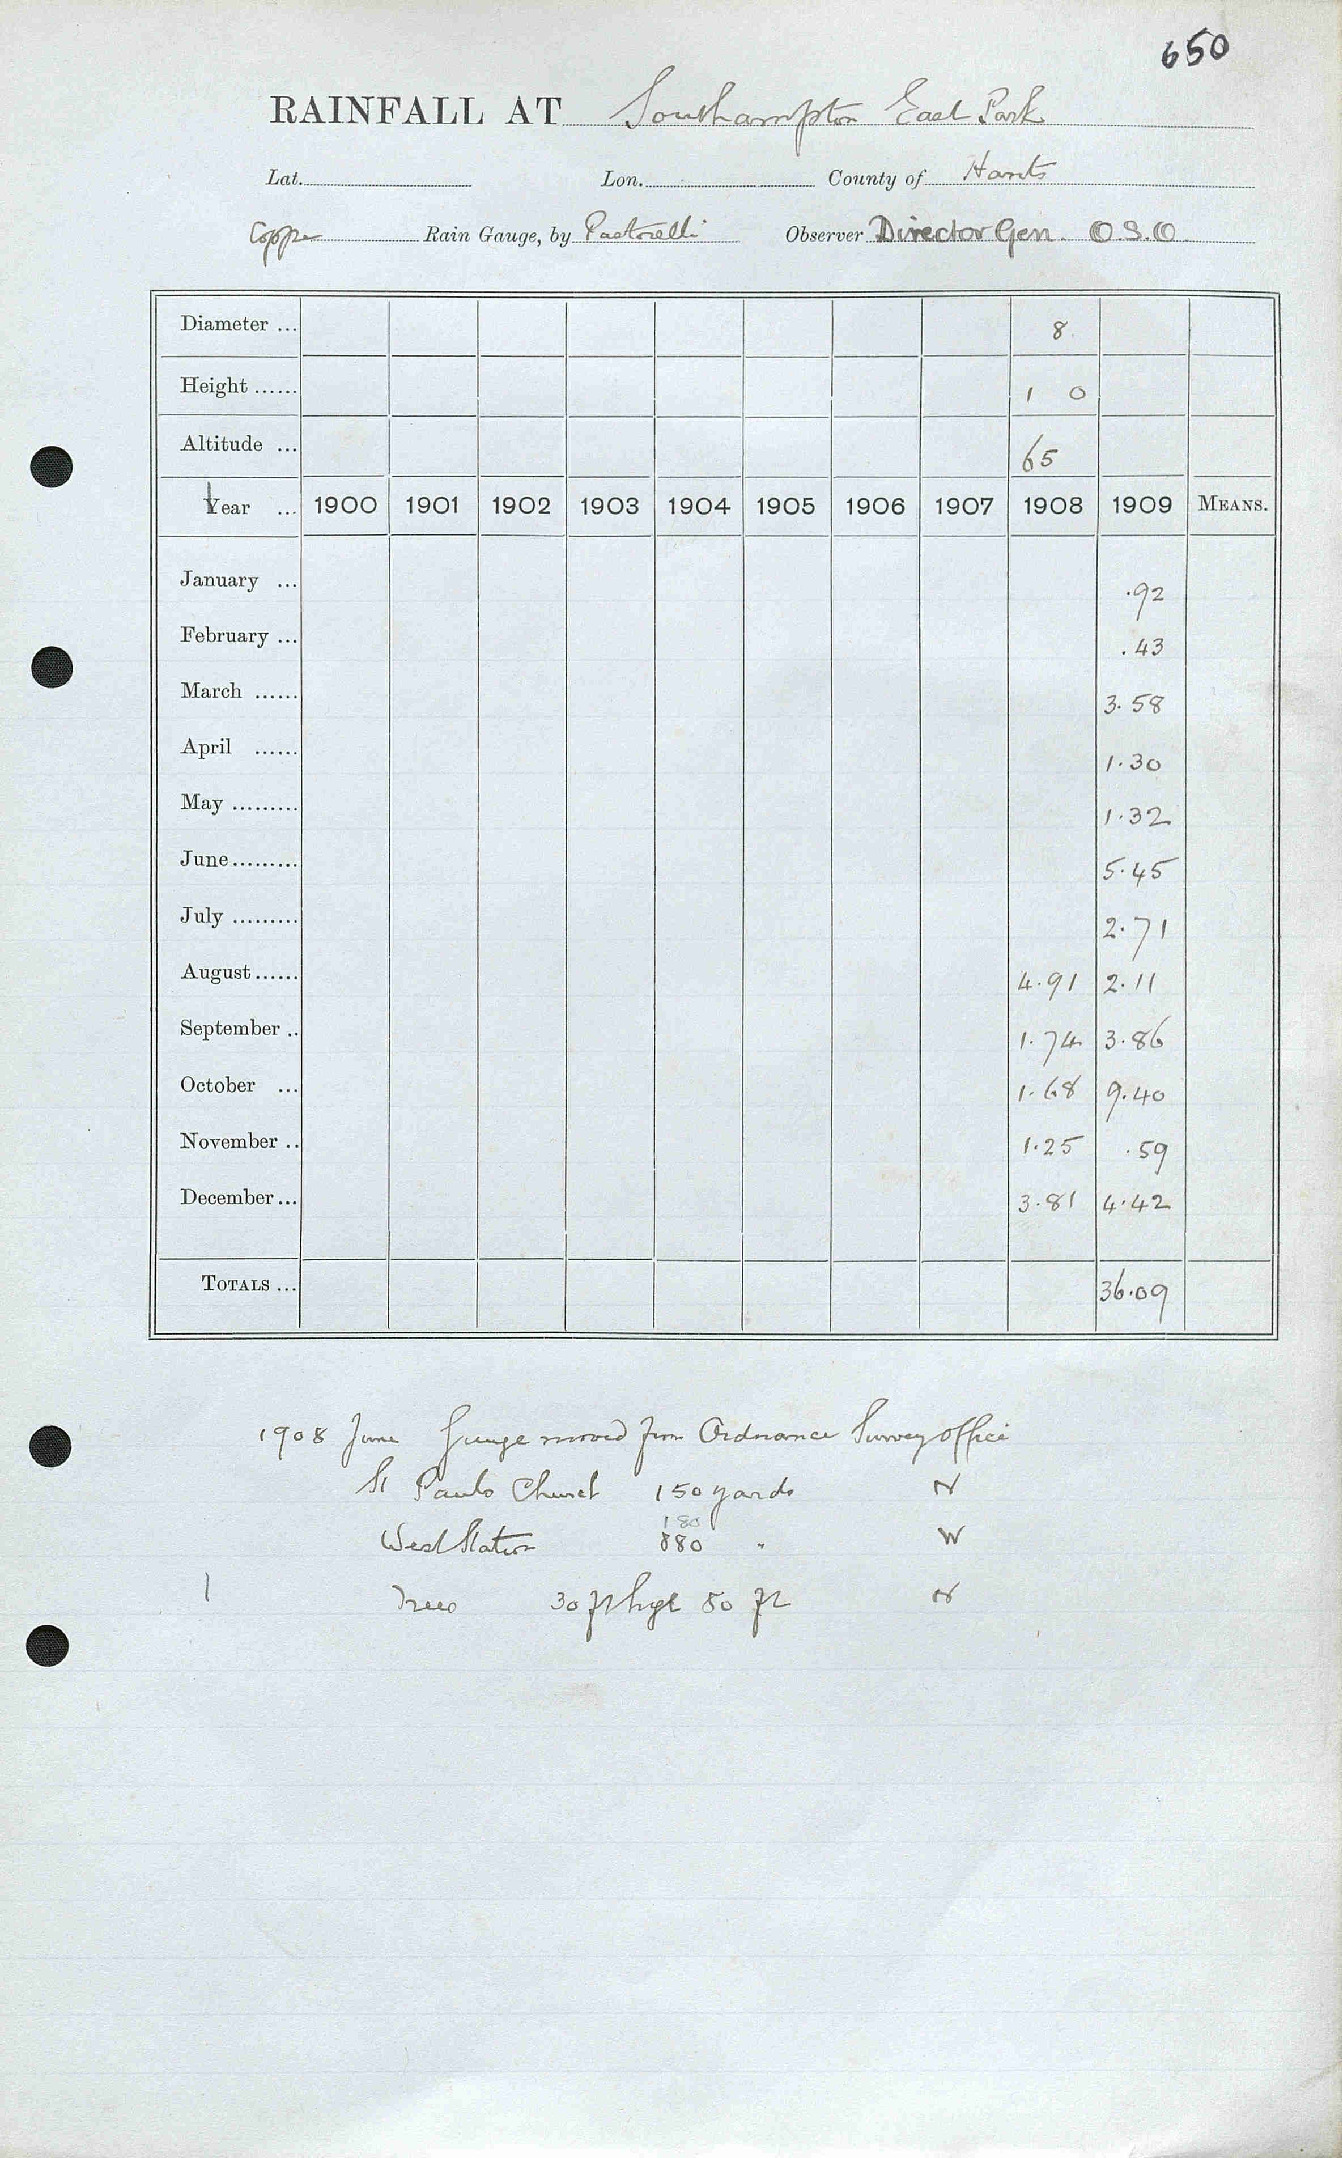 650
RAINFALL AT Southampton East Park
Lat. Lon. County of Hants
Copper Rain Gauge, by Pastorelli Observer Director Gen. O.S.O.
Diameter ... 8
Height ...... 1 0
Altitude ... 65
Year ... 1900 1901 1902 1903 1904 1905 1906 1907 1908 1909 MEANS.
January ... .92
February ... .43
March ...... 3.58
April ...... 1.30
May ......... 1.32
June ......... 5.45
July ......... 2.71
August ...... 4.91 2.11
September .. 1.74 3.86
October ... 1.68 9.40
November .. 1.25 .59
December ... 3.81 4.42
TOTALS ... 36.09
1908 June Gauge moved from Ordnance Survey Office
St Pauls Church 150 yards N
180
West Station 880 " W
Trees 30 ft high 50 ft N